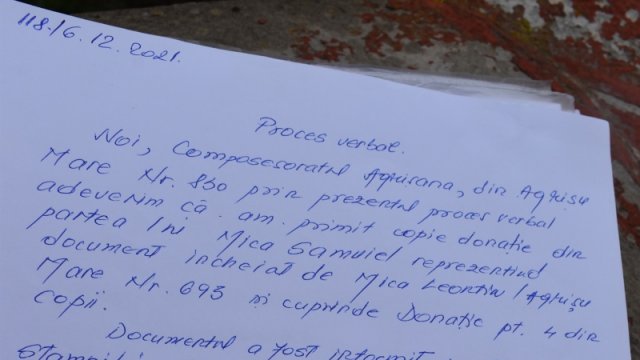 118./6.12.2021.
Proces verbal.
Noi, Composesoratul Agrișana, din Agrișu
Mare Nr. 850 prin prezentul proces verbal
adeverim că am primit copie donație din
partea lui Mica Samuiel reprezentind
document incheiat de Mica Leontin / Agrișu
Mare Nr. 693 și cuprinde Donație pt. 4 din
copii.
Documentul a fost intocmit